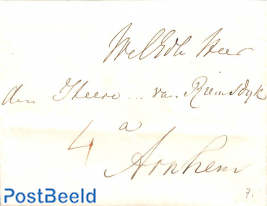 WelEdle Heer
den Heere .. van Riemsdyk
a
4
Arnhem
7.
PostBeeld